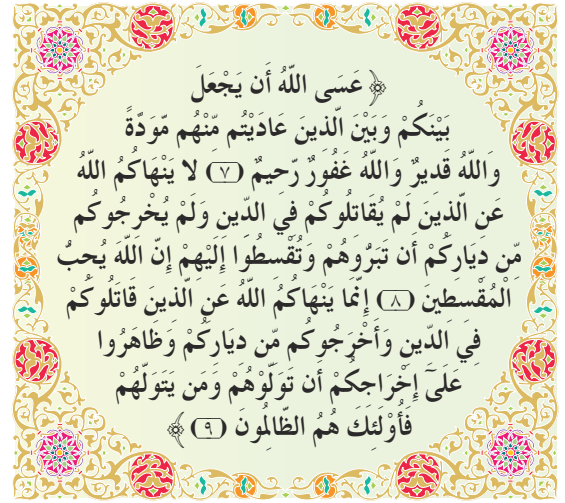 ﴿ عَسَى اللّهُ أَن يَجْعَلَ
بَيْنَكُمْ وَبَيْنَ الّذينَ عَادَيْتُم مِّنْهُم مّوَدّةً
وَاللّهُ قَديرٌ وَاللّهُ غَفُورٌ رّحِيمٌ (٧) لا يَنْهَاكُمُ اللّهُ
عَنِ الّذينَ لَمْ يُقَاتلُوكُمْ فِي الدّينِ وَلَمْ يُخْرِجُوكُم
مّن دِيَارِكُمْ أَن تَبَرّوهُمْ وَتُقْسطُوَا إِلَيْهِمْ إِنّ اللّهَ يُحبُّ
الْمُقْسطينَ (٨) إِنّمَا يَنْهَاكُمُ اللّهُ عَنِ الّذينَ قَاتَلُوكُمْ
فِي الدّينِ وَأَخْرَجُوكُم مّن ديَارِكُمْ وَظَاهَرُوا
عَلَىَ إِخْرَاجِكُمْ أَن تَوَلّوْهُمْ وَمَن يَتَوَلّهُمْ
فَأُوْلَئِكَ هُمُ الظّالِمُونَ (٩) ﴾